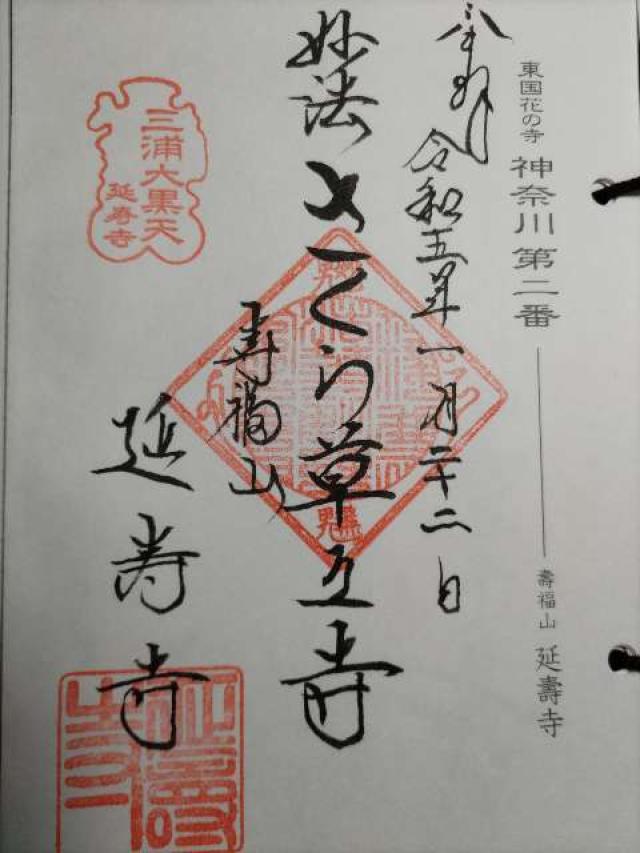 東国花の寺 神奈川第二番
壽福山 延壽寺
令和五年一月二十二日
妙法
さくら草乃寺
寿福山
延寿寺
三浦大黒天
延寿寺